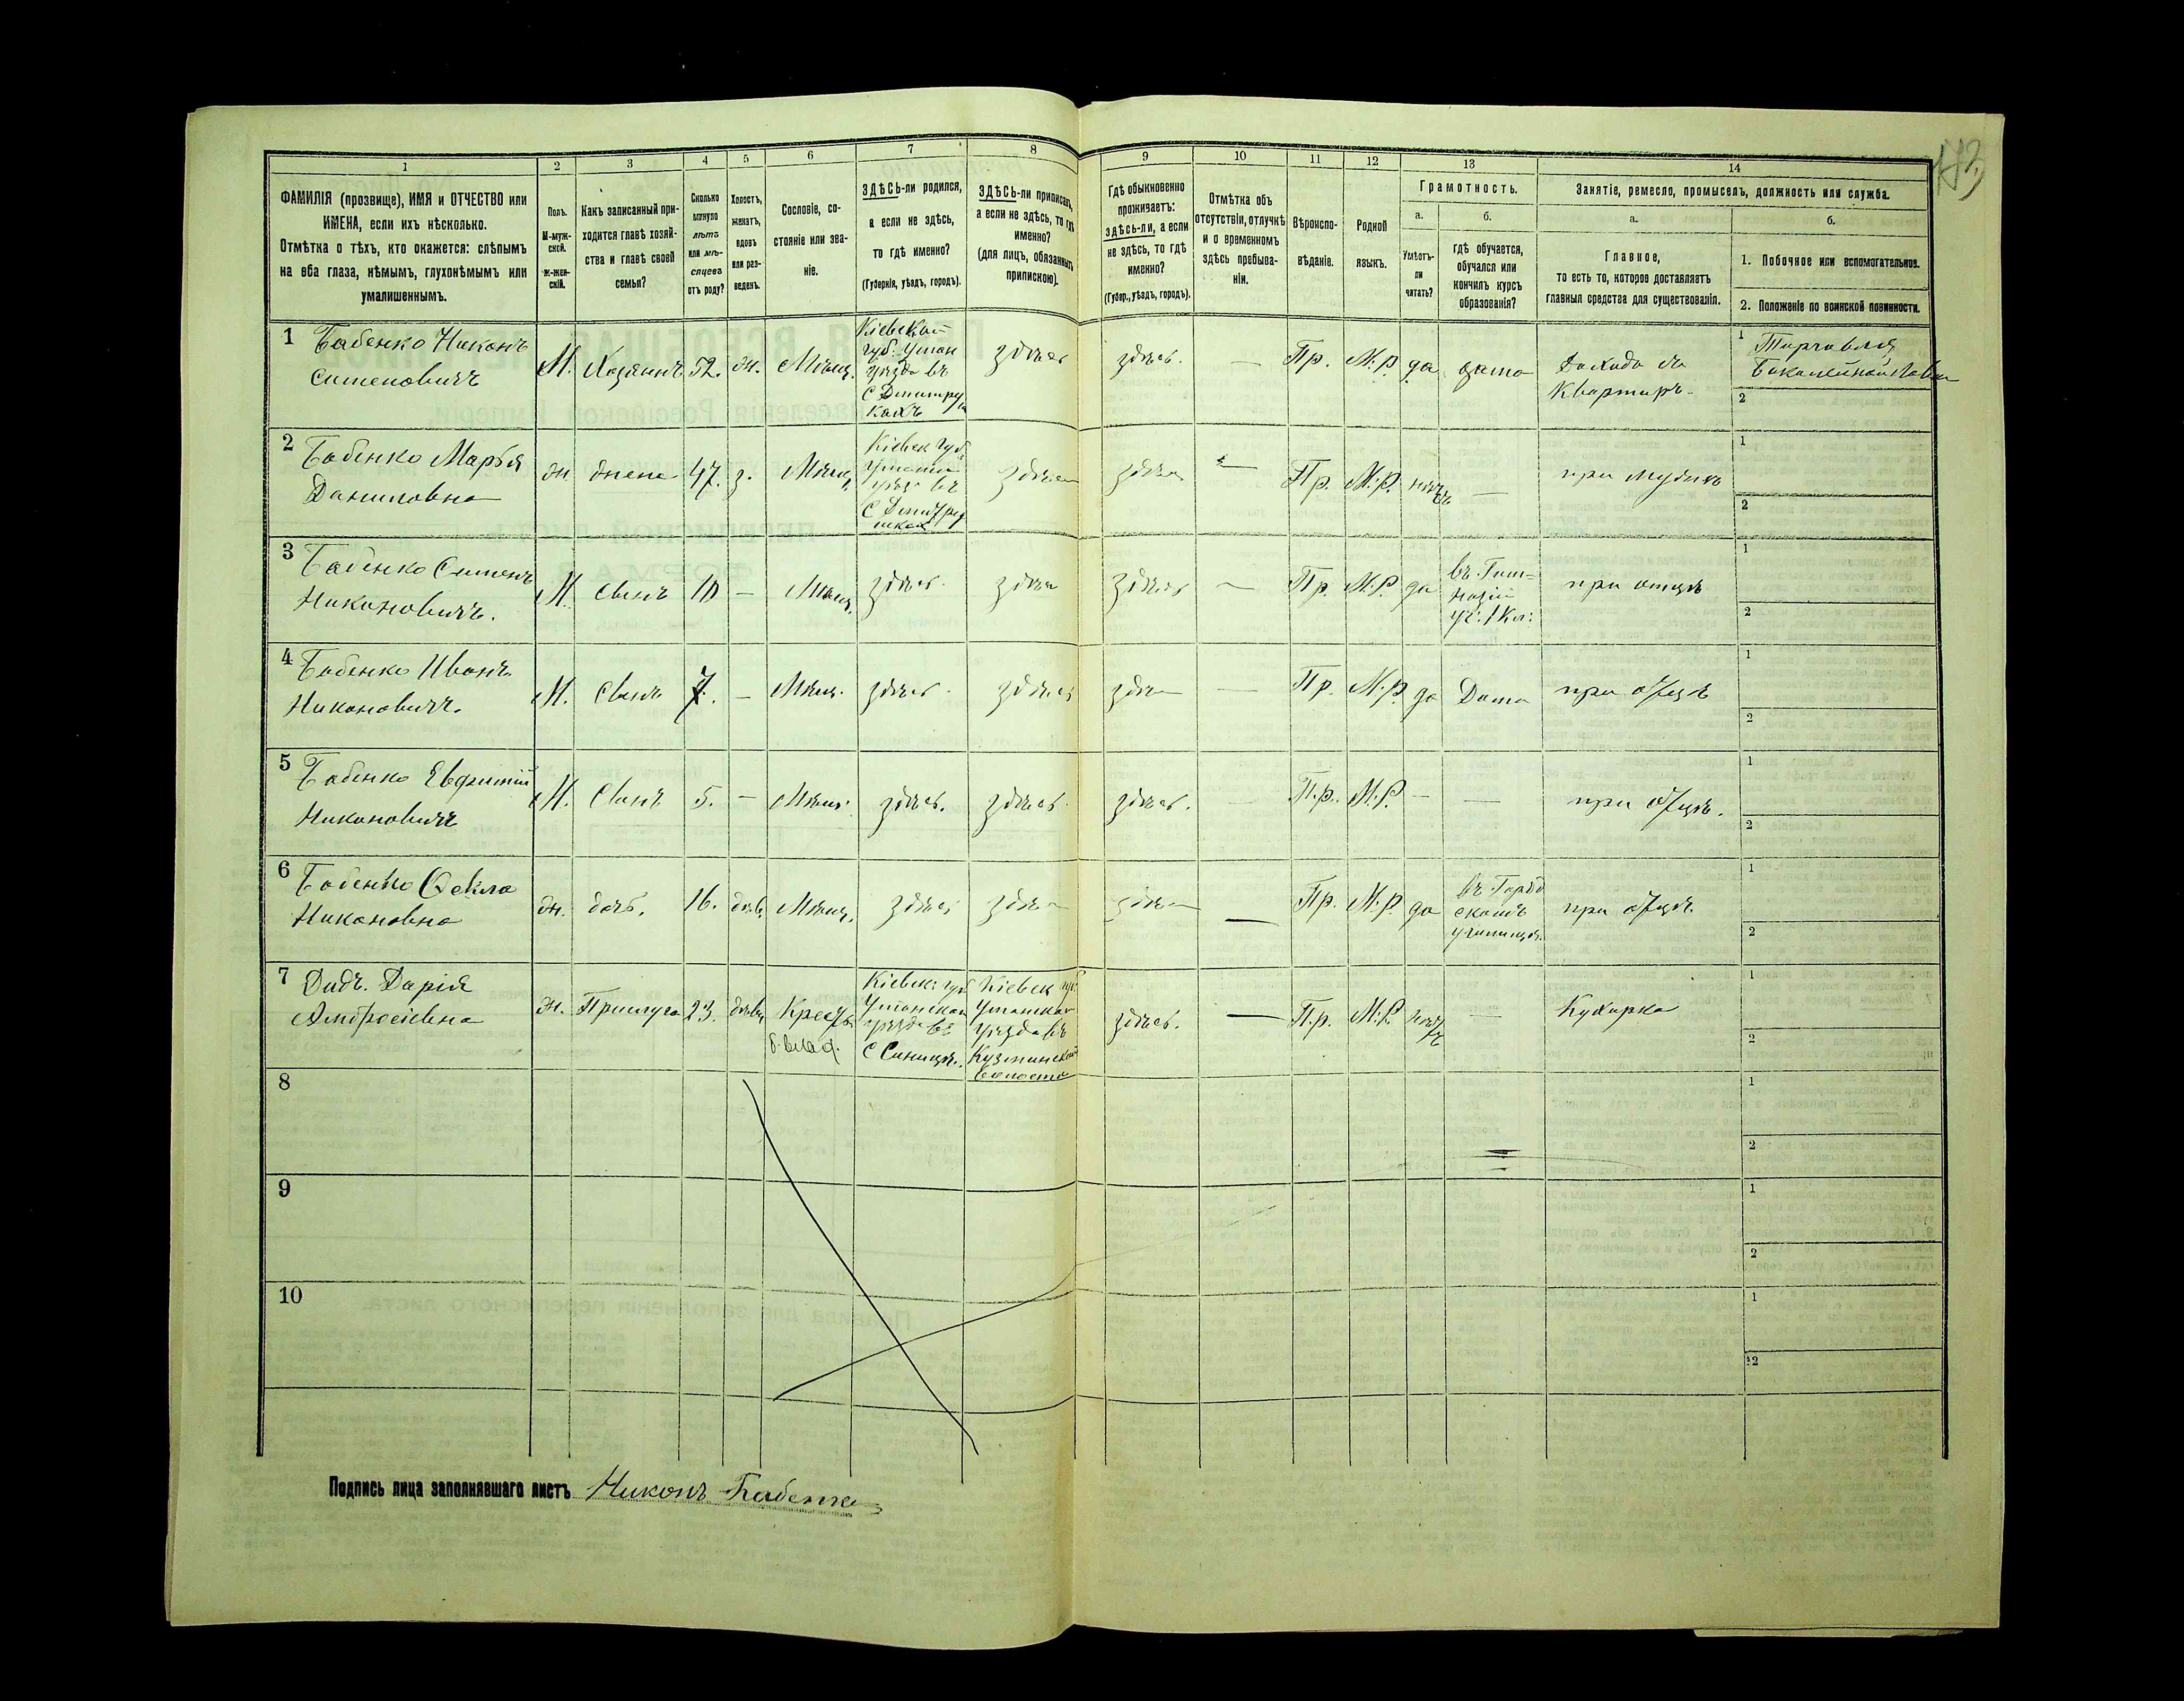 173
1 2 3 4 5 6 7 8 9 10 11 12 13 14
ФАМИЛІЯ (прозвище), ИМЯ и ОТЧЕСТВО или
ИМЕНА, если ихъ нѣсколько.
Отмѣтка о тѣхъ, кто окажется: слѣпымъ
на оба глаза, нѣмымъ, глухонѣмымъ или
умалишеннымъ.
Полъ.
М-муж-
ской.
ж-жен-
скій.
Какъ записанный при-
ходится главѣ хозяй-
ства и главѣ своей
семьи?
Сколько
минуло
лѣтъ
или мѣ-
сяцевъ
отъ роду?
Холостъ,
женатъ,
вдовъ
или раз-
веденъ.
Сословіе, со-
стояніе или зва-
ніе.
ЗДѢСЬ-ли родился,
а если не здѣсь,
то гдѣ именно?
(Губернія, уѣздъ, городъ).
ЗДѢСЬ-ли приписанъ,
а если не здѣсь, то гдѣ
именно?
(для лицъ, обязанныхъ
припискою).
Гдѣ обыкновенно
проживаетъ:
здѣсь-ли, а если
не здѣсь, то гдѣ
именно?
(Губер., уѣздъ, городъ).
Отмѣтка объ
отсутствіи, отлучкѣ
и о временномъ
здѣсь пребыва-
ніи.
Вѣроиспо-
вѣданіе.
Родной
языкъ.
Грамотность.
а.
Умѣетъ-
ли
читать?
б.
гдѣ обучается,
обучался или
кончилъ курсъ
образованія?
Занятіе, ремесло, промыселъ, должность или служба.
а.
Главное,
то есть то, которое доставляетъ
главныя средства для существованія.
б.
1. Побочное или вспомогательное.
2. Положеніе по воинской повинности.
1 Бабенко Никонъ
Сименовичъ
М. Хозяинъ 52. ж. Мѣщ.
Кіевской
губ. Уман
уезда въ
С Дмитру
кахъ
здѣсь здѣсь. — Пр. М.Р да дома
Дохода съ
Квартиръ
1 Торговля
Бакалейной Лавки
2
2 Бабенко Марья
Даниловна
ж жена 47. з. Мѣщ.
Кіевск губ.
Уманск
уезд въ
С Дмитру
шках
здѣсь здѣсь — Пр. М.Р. нѣтъ — при мужѣ
1
2
3 Бабенко Сименъ
Никоновичъ.
М. Сынъ 10 — Мѣщ. здѣсь. здѣсь здѣсь — Пр. М.Р. да
въ Гим=
назіи
уч: 1 Кл:
при отцѣ
1
2
4 Бабенко Иванъ
Никоновичъ.
М. Сынъ 7. — Мѣщ. здѣсь. здѣсь здѣсь — Пр. М.Р. да Дома при отцѣ
1
2
5 Бабенко Евфимій
Никоновичъ
М. Сынъ 5. — Мѣщ. здѣсь. здѣсь. здѣсь. — П.р. М.Р. — — при отцѣ.
1
2
6 Бабенко Фекла
Никоновна
ж. дочь. 16. дѣв. Мѣщ. здѣсь здѣсь здѣсь — Пр. М.Р. да
въ Город
скомъ
училищѣ.
при отцѣ.
1
2
7 Дидъ. Дарія
Амбросіевна
ж. Прислуга 23. дѣви Крест.
б. влад.
Кіевск: губ
Уманскаго
уезда въ
С Синицѣ.
Кіевск губ.
Уманскаго
уезда въ
Кузминской
Волости
здѣсь. — П.р. М.Р. нѣтъ — Кухарка
1
2
8
1
2
9
1
2
10
1
2
Подпись лица заполнявшаго листъ Никонъ Бабенко